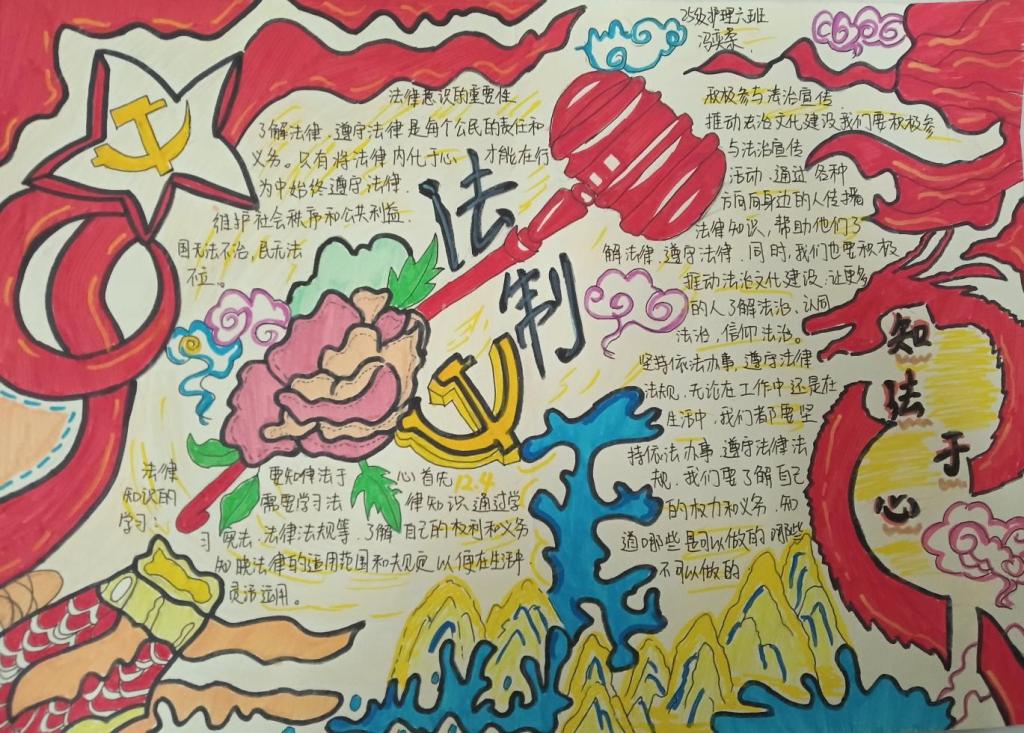 25级护理六班
冯奕
法律意识的重要性
了解法律、遵守法律是每个公民的责任和
义务。只有将法律内化于心 才能在行
为中始终遵守法律.
维护社会秩序和公共利益
国无法不治,民无法
不立。
法
制
积极参与法治宣传
推动法治文化建设我们要积极参
与法治宣传
活动,通过各种
方向向身边的人传播
法律知识,帮助他们了
解法律、遵守法律.同时,我们也要积极
推动法治文化建设,让更多
的人了解法治、认同
法治,信仰法治。
坚持依法办事,遵守法律
法规,无论在工作中还是在
生活中,我们者都要坚
持依法办事 遵守法律法
规.我们要了解自己
的权力和义务.知
道哪些是可以做的哪些
不可以做的
知
法
于
心
法律
知识的
学习:
要知律法于 心首先
12.4
需要学习法 律知识 通过学
习宪法、法律法规等、了解自己的权利和义务
知晓法律的适用范围和规定以便在生活中
灵活运用。